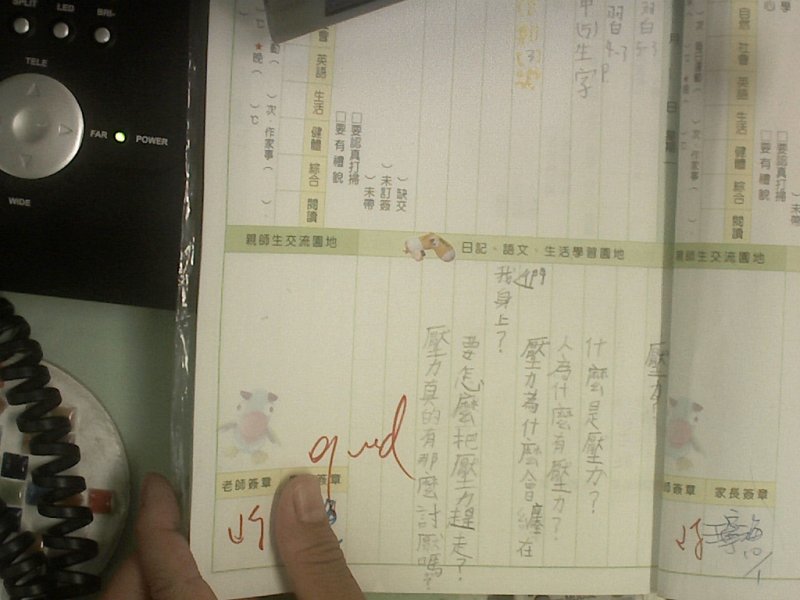 SPLIT
LED
BRI-
TELE
FAR
POWER
WIDE
習自4-3
習自
4-3
P
(5)生字
會
英語
生活
健體
綜合
閱讀
★晚
次．作家事（
□要認真打掃
□要有禮貌
）缺交
）未訂簽
）未帶
親師生交流園地
日記、語文、生活學習園地
壓力？
什麼是壓力？
人為什麼有壓力？
壓力為什麼會纏在
我身上？
要怎麼把壓力趕走？
壓力真的有那麼討厭嗎？
good
老師簽章
簽章
自然
社會
英語
生活
健體
綜合
閱讀
次．作家事（
□要認真打掃
□要有禮貌
未帶
親師生交流園地
師簽章
家長簽章
10/1